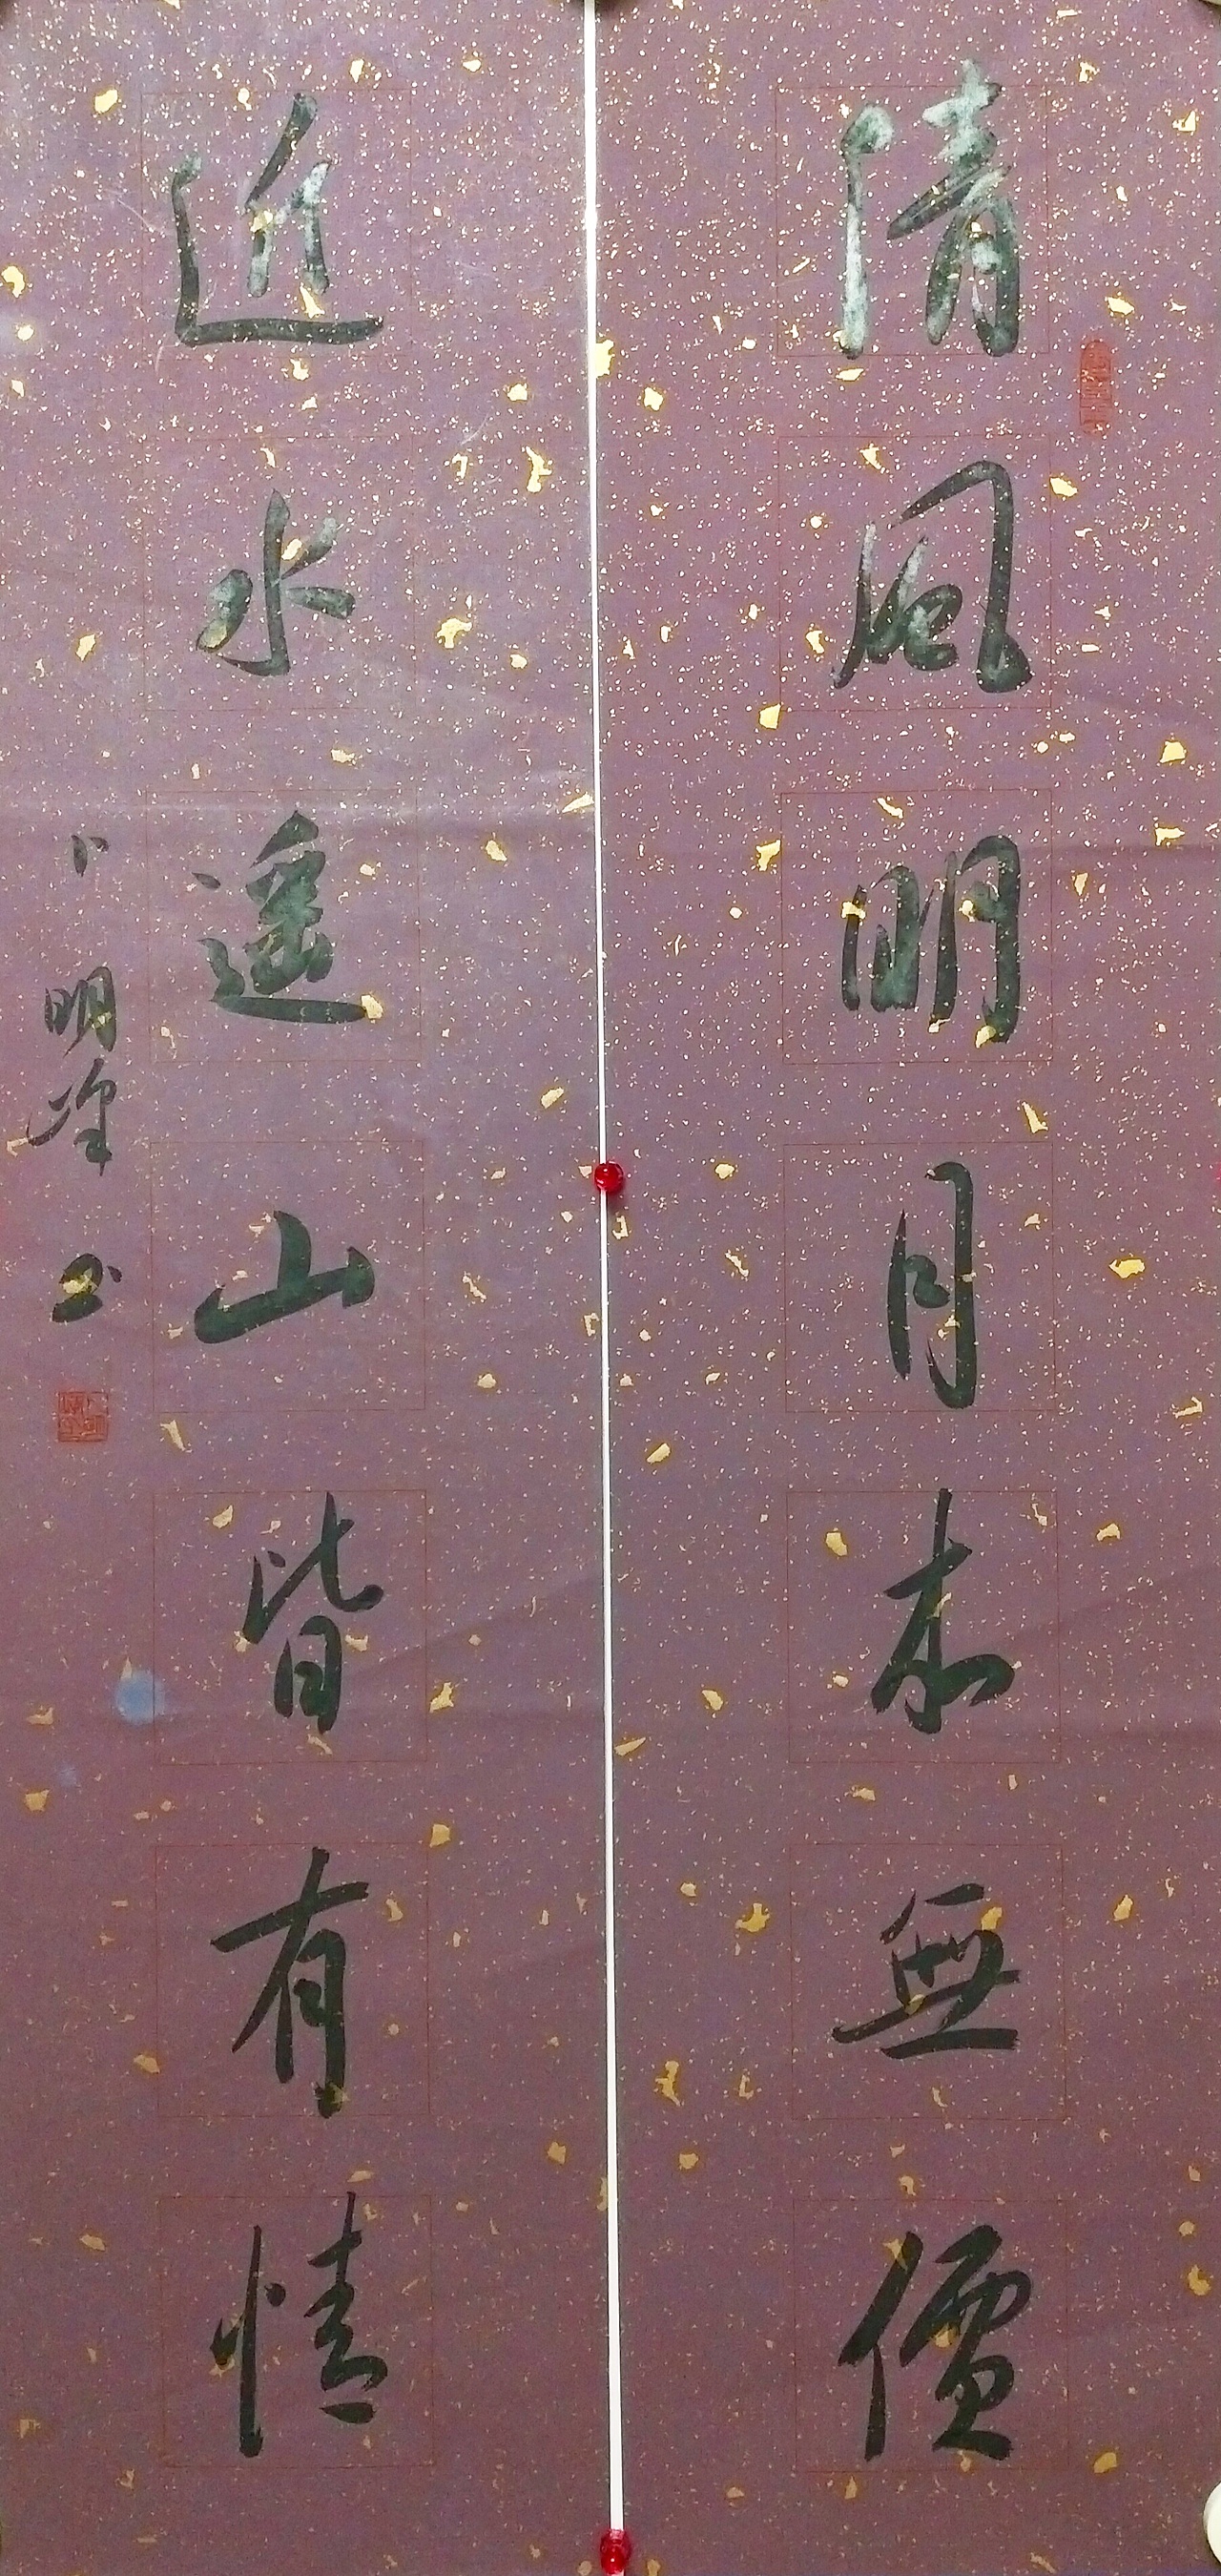 清風明月本無價
近水遥山皆有情
卜明峰书